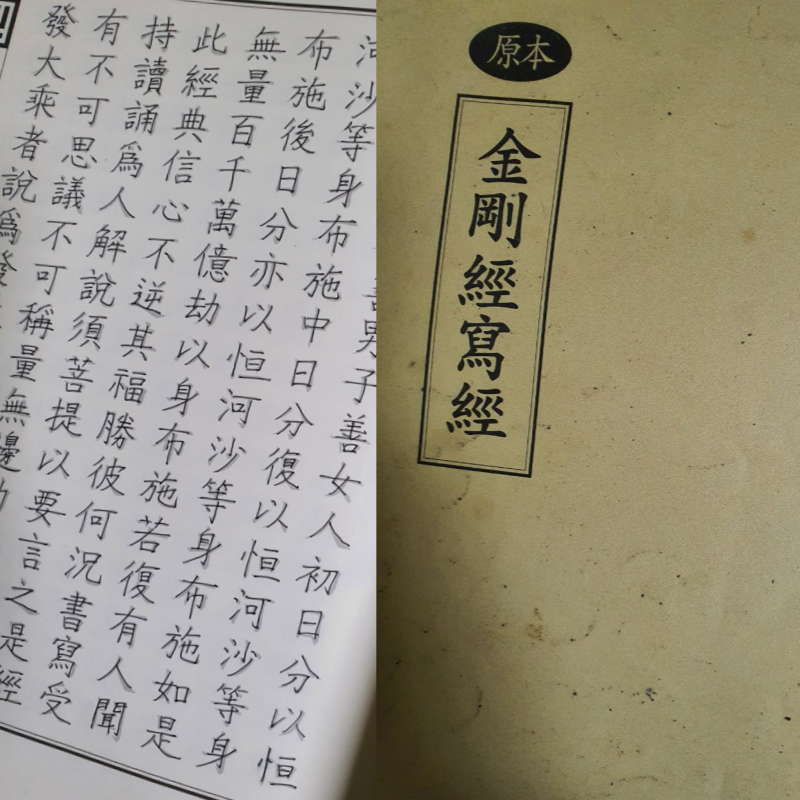 男子善女人初日分以恒
河沙等身布施中日分復以恒河沙等身
布施後日分亦以恒河沙等身布施如是
無量百千萬億劫以身布施若復有人聞
此經典信心不逆其福勝彼何況書寫受
持讀誦爲人解說須菩提以要言之是經
有不可思議不可稱量無邊
發大乘者說爲發
原本
金剛經寫經